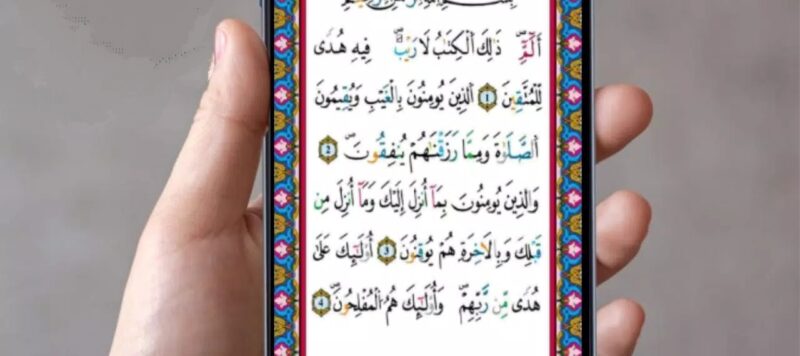 بِسْمِ اللَّهِ الرَّحْمَٰنِ الرَّحِيمِ
أَلَٓمِّٓۖ ذَٰلِكَ اَلْكِتَٰبُ لَا رَيْبَۖ فِيهِ هُدىٗ
لِّلْمُتَّقِينَ 1 اَلذِينَ يُومِنُونَ بِالْغَيْبِ وَيُقِيمُونَ
اَلصَّلَوٰةَ وَمِمَّا رَزَقْنَٰهُمْ يُنفِقُونَۖ 2
وَالذِينَ يُومِنُونَ بِمَآ أُنزِلَ إِلَيْكَ وَمَآ أُنزِلَ مِن
قَبْلِكَ وَبِالَاخِرَةِ هُمْ يُوقِنُونَ 3 أُوْلَٰٓئِكَ عَلَىٰ
هُدىٗ مِّن رَّبِّهِمْۖ وَأُوْلَٰٓئِكَ هُمُ اُلْمُفْلِحُونَۖ 4